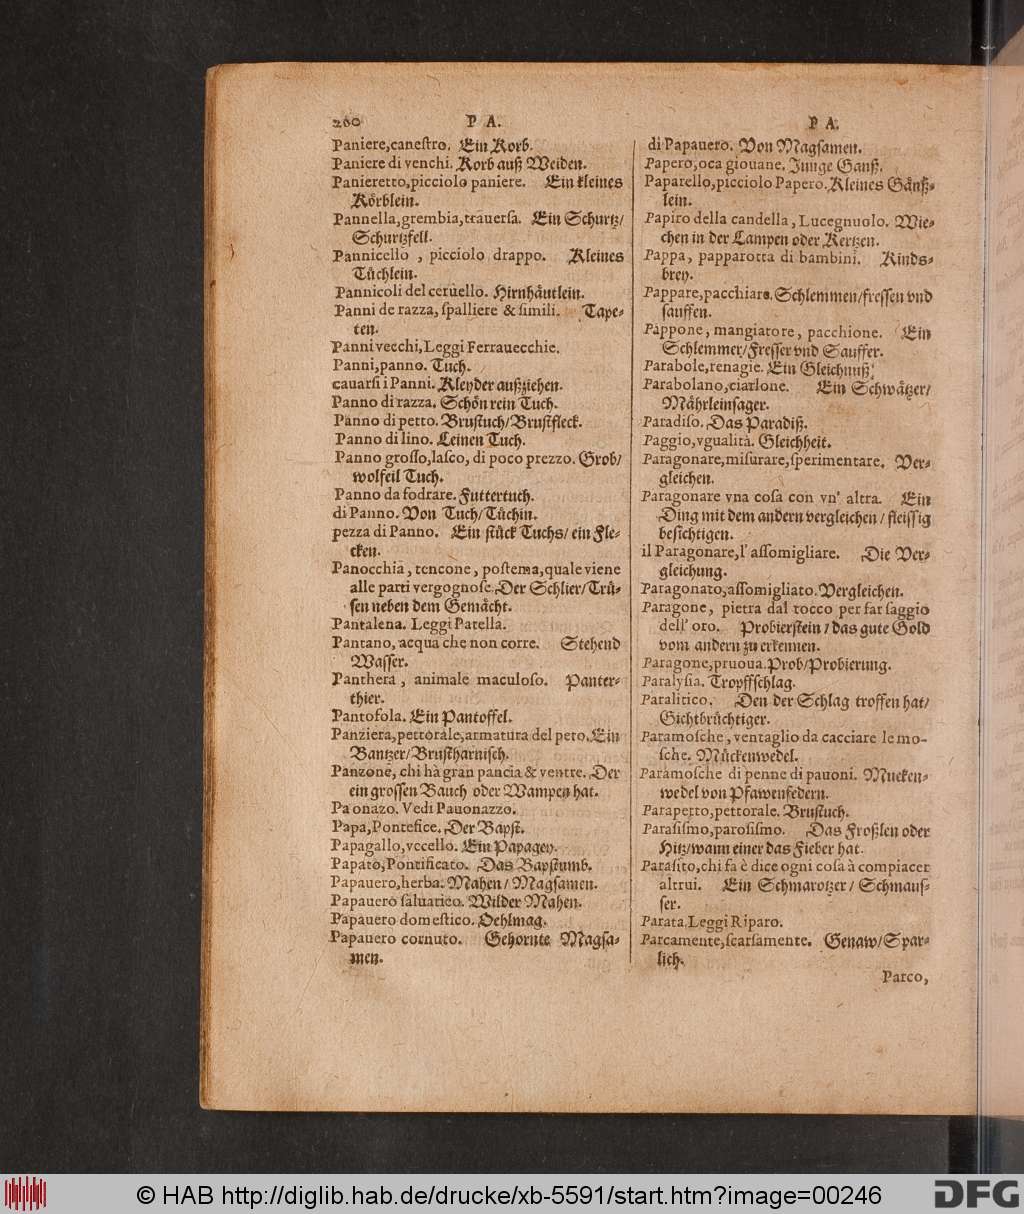 260 P A.
Paniere,caneſtro. Ein Korb.
Paniere di venchi. Korb auß Weiden.
Panieretto,picciolo paniere. Ein kleines
Körblein.
Pannella,grembia,trauerſa. Ein Schurtz/
Schurtzfell.
Pannicello , picciolo drappo. Kleines
Tüchlein.
Pannicoli del ceruello. Hirnhäutlein.
Panni de razza, ſpalliere & ſimili. Tape-
ten.
Panni vecchi,Leggi Ferrauecchie.
Panni,panno. Tuch.
cauarſi i Panni. Kleyder außziehen.
Panno di razza. Schön rein Tuch.
Panno di petto. Bruſtuch/Bruſtfleck.
Panno di lino. Leinen Tuch.
Panno groſſo,laſco, di poco prezzo. Grob/
wolfeil Tuch.
Panno da fodrare. Futtertuch.
di Panno. Von Tuch/Tüchin.
pezza di Panno. Ein ſtück Tuchs/ ein Fle-
cken.
Panocchia , tencone , poſtema,quale viene
alle parti vergognoſe.Der Schlier/Trü-
ſen neben dem Gemächt.
Pantalena. Leggi Patella.
Pantano, acqua che non corre. Stehend
Waſſer.
Panthera , animale maculoſo. Panter-
thier.
Pantofola. Ein Pantoffel.
Panziera,pettorale,armatura del peto.Ein
Bantzer/Bruſtharniſch.
Panzone, chi hà gran pancia & ventre. Der
ein groſſen Bauch oder Wampen hat.
Pa onazo. Vedi Pauonazzo.
Papa,Pontefice. Der Bapſt.
Papagallo,vccello. Ein Papagey.
Papato,Pontificato. Das Bapſtumb.
Papauero,herba. Mahen/ Magſamen.
Papauero ſaluatico. Wilder Mahen.
Papauero domeſtico. Oehlmag.
Papauero cornuto. Gehornte Magſa-
men.
P A.
di Papauero. Von Magſamen.
Papero,oca giouane. Junge Ganß.
Paparello,picciolo Papero.Kleines Gänß-
lein.
Papiro della candella , Lucegnuolo. Wie-
chen in der Lampen oder Kertzen.
Pappa, papparotta di bambini. Kinds-
brey.
Pappare,pacchiare.Schlemmen/freſſen vnd
ſauffen.
Pappone, mangiatore, pacchione. Ein
Schlemmer/Freſſer vnd Sauffer.
Parabole,renagie. Ein Gleichnuß.
Parabolano,ciarlone. Ein Schwätzer/
Mährleinſager.
Paradiſo. Das Paradiß.
Paggio,vgualità. Gleichheit.
Paragonare,miſurare,ſperimentare. Ver-
gleichen.
Paragonare vna coſa con vn' altra. Ein
Ding mit dem andern vergleichen / fleiſſig
beſichtigen.
il Paragonare,l' aſſomigliare. Die Ver-
gleichung.
Paragonato,aſſomigliato.Vergleichen.
Paragone, pietra dal tocco per far ſaggio
dell' oro. Probierſtein / das gute Gold
vom andern zu erkennen.
Paragone,pruoua.Prob/Probierung.
Paralyſia. Tropffſchlag.
Paralitico. Den der Schlag troffen hat/
Gichtbrüchtiger.
Paramoſche , ventaglio da cacciare le mo-
ſche. Mückenwedel.
Paramoſche di penne di pauoni. Mucken-
wedel von Pfawenfedern.
Parapetto,pettorale. Bruſtuch.
Paraſiſmo,paroſiſmo. Das Froßlen oder
Hitz/wann einer das Fieber hat.
Paraſito,chi fa è dice ogni coſa à compiacer
altrui. Ein Schmarotzer / Schmauſ-
ſer.
Parata.Leggi Riparo.
Parcamente,ſcarſamente. Genaw/Spar-
lich.
Parco,
© HAB http://diglib.hab.de/drucke/xb-5591/start.htm?image=00246
DFG